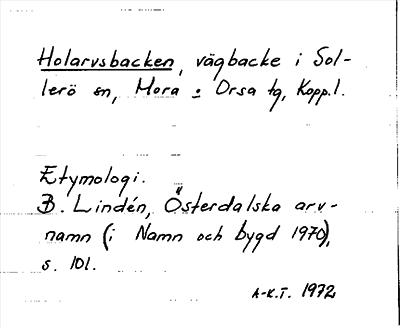 Holarvsbacken, vägbacke i Sol-
lerö sn, Mora o Orsa tg, Kopp.l.
Etymologi.
B. Lindén, Österdalska arv-
namn (i Namn och bygd 1970),
s. 101.
A-K.T. 1972